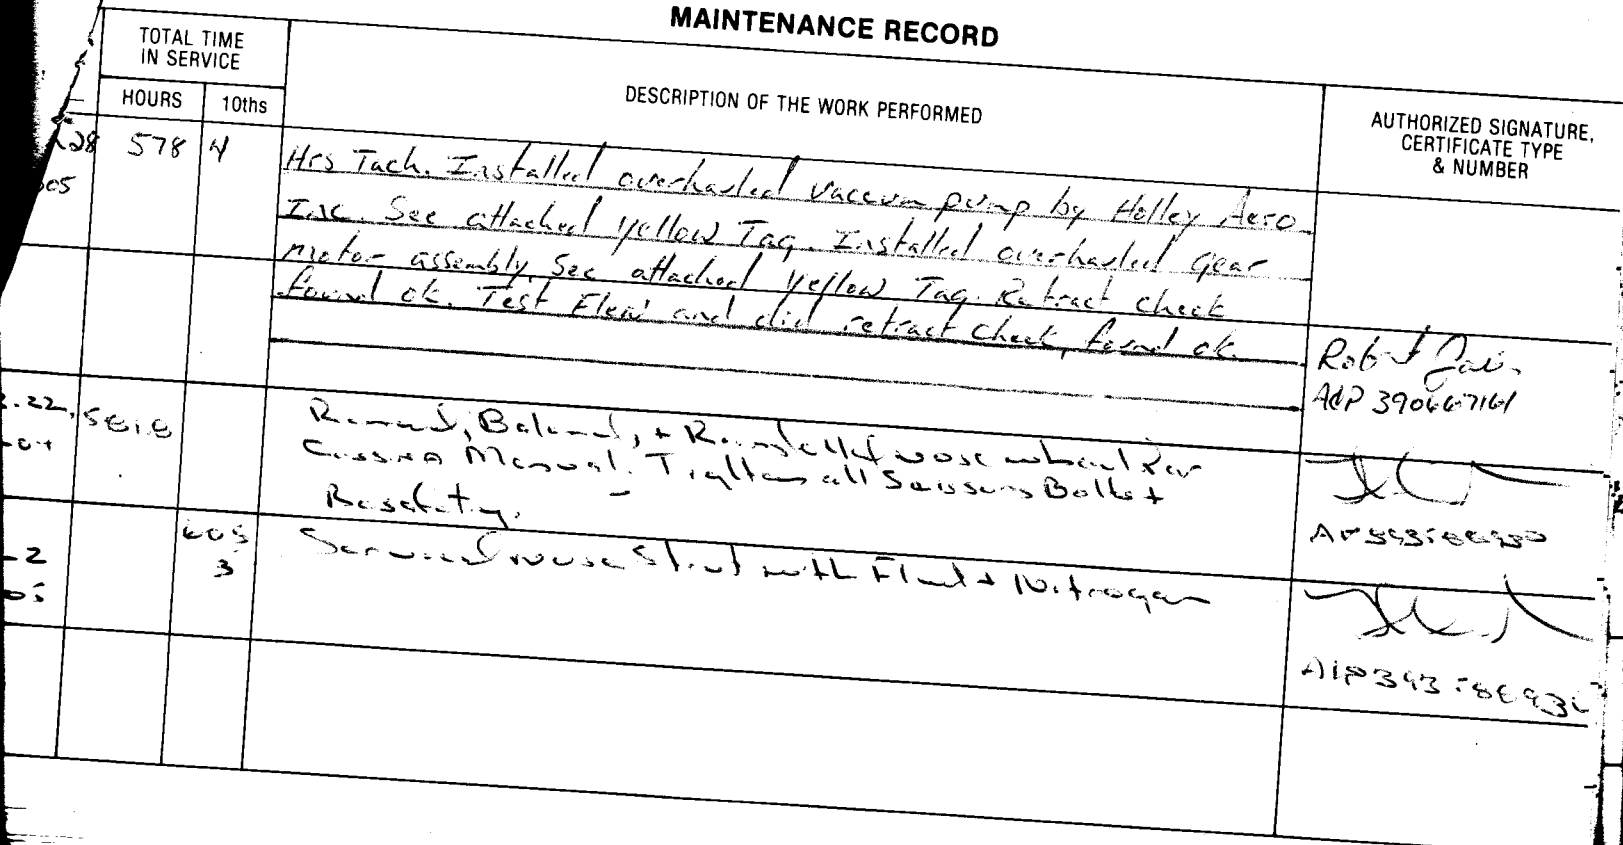 MAINTENANCE RECORD
TOTAL TIME
IN SERVICE
HOURS
10ths
DESCRIPTION OF THE WORK PERFORMED
AUTHORIZED SIGNATURE,
CERTIFICATE TYPE
& NUMBER
28 578 4
Hrs Tach. Installed overhauled vaccum pump by Holley Aero
05
Inc. See attached yellow Tag. Installed overhauled gear
motor assembly. See attached yellow Tag. Retract check
found ok. Test Flew and did retract check, found ok.
Robert
A&P
22
Removed, Balanced, + Reinstalled nose wheel per
Cessna Manual. Tighten all Scissors Bolts +
605
3
Serviced nose Strut with Fluid + Nitrogen
2